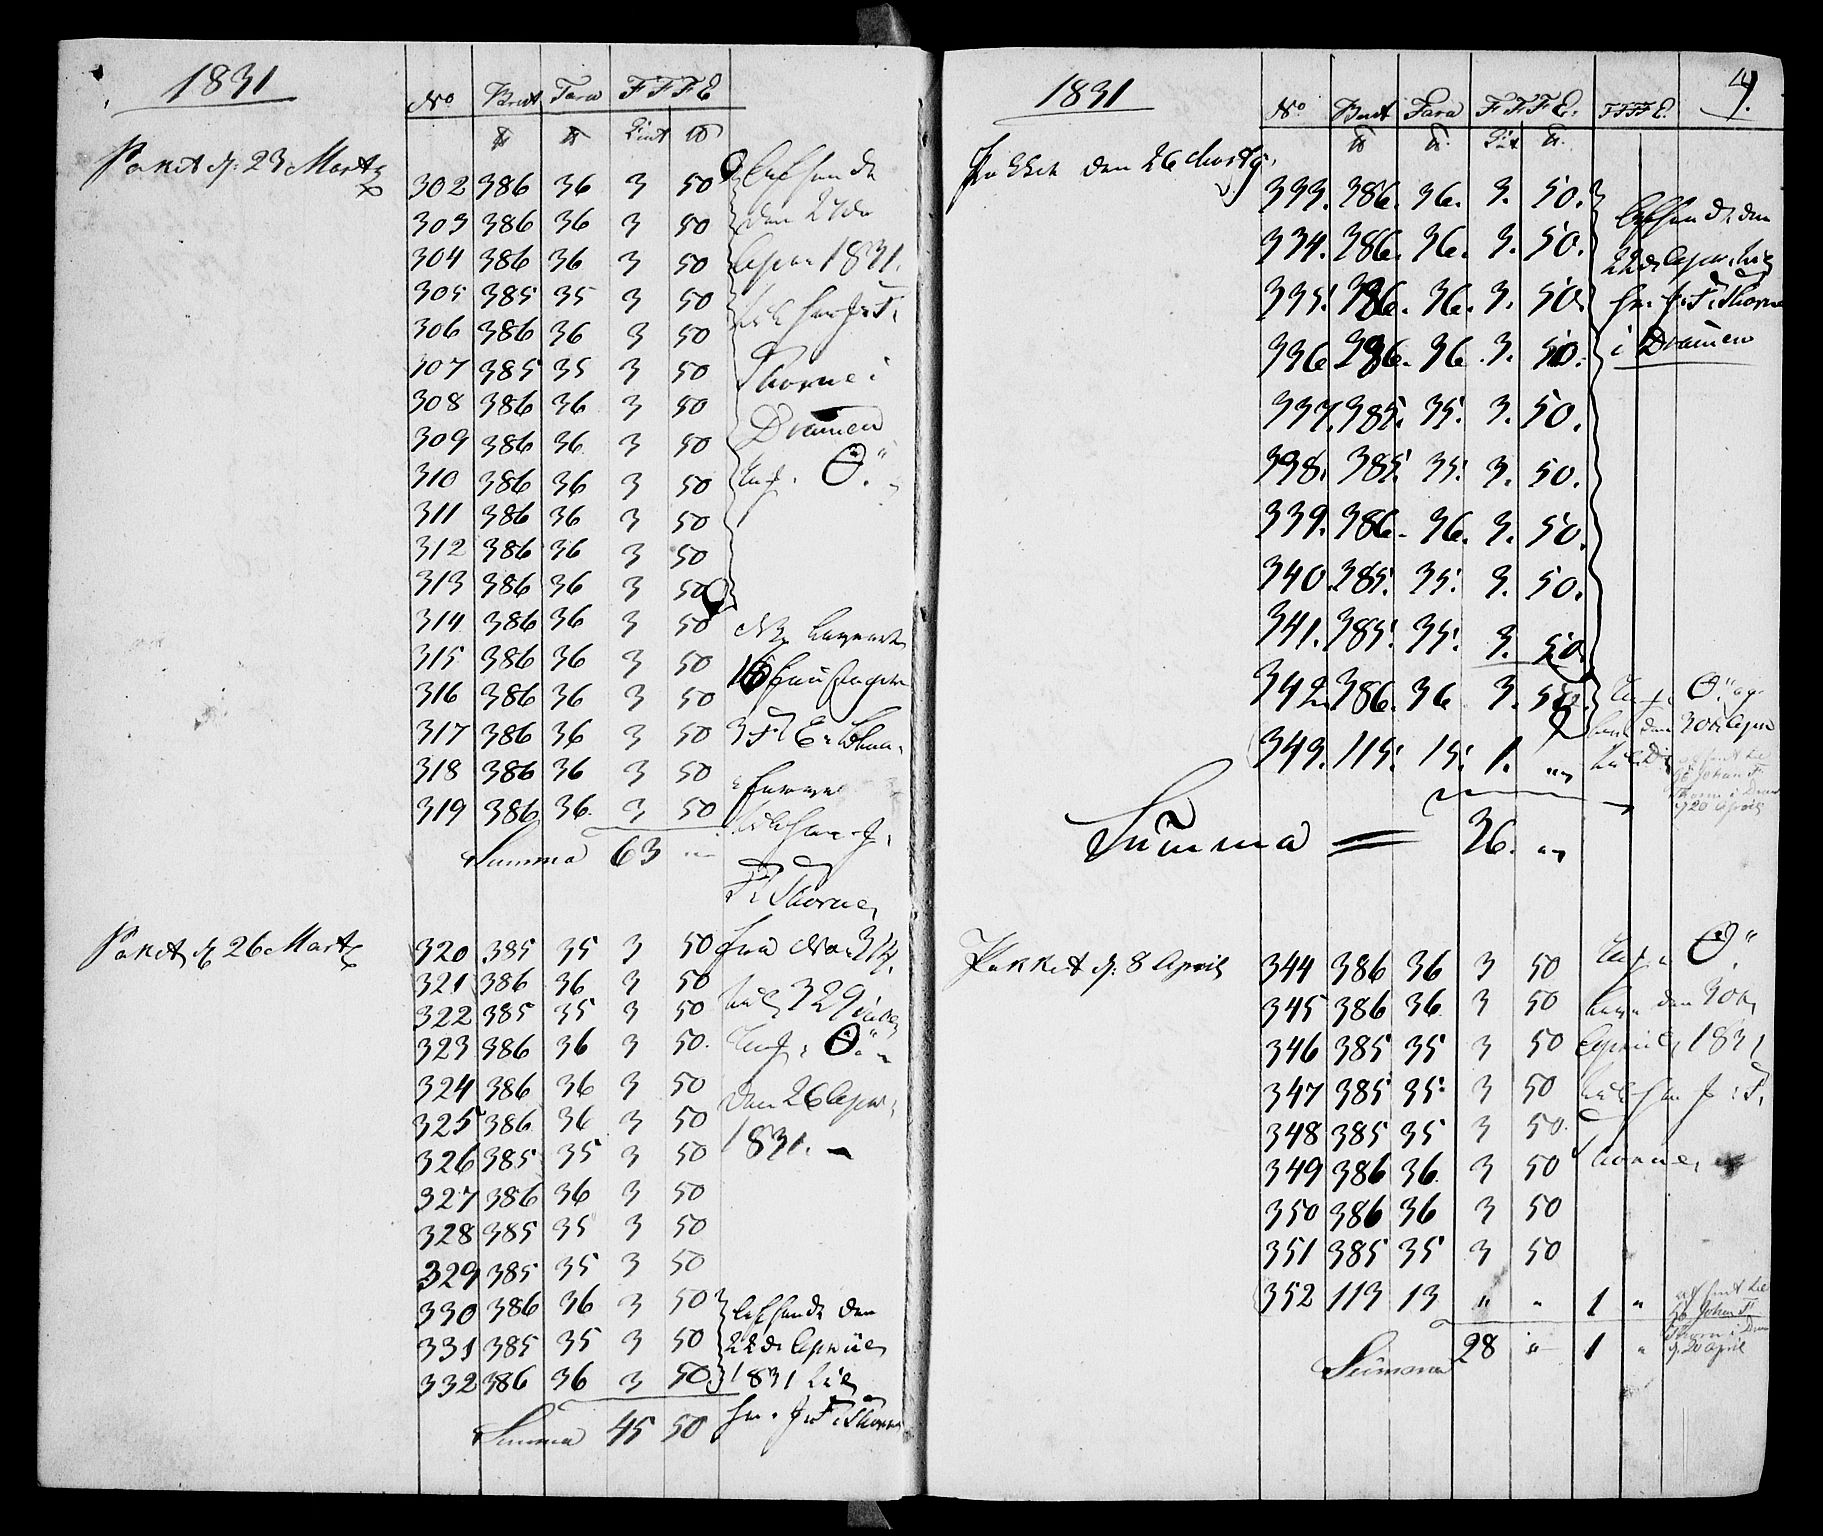 1831
No Brut Tara FFFE
℔ ℔ Cint ℔
Paket d: 23 Martz
302 386 36 3 50 Afsendt
303 386 36 3 50 den 27de
304 386 36 3 50 Apr. 1831.
305 385 35 3 50 til Herr J: F.
306 386 36 3 50
307 385 35 3 50 Thorne i
308 386 36 3 50
309 386 36 3 50 Dramen
310 386 36 3 50 Θ.
311 386 36 3 50
312 386 36 3 50
313 386 36 3 50
314 386 36 3 50
315 386 36 3 50 16
316 386 36 3 50
317 386 36 3 50 3 F E.
318 386 36 3 50
319 386 36 3 50
Summa 63 "
F. Thorne,
Paket d 26 Martz
320 385 35 3 50 fra No. 314.
321 386 36 3 50
322 385 35 3 50 til 329
323 386 36 3 50. Θ.
324 386 36 3 50
325 386 36 3 50 den 26 Apr.
326 385 35 3 50 1831. –
327 386 36 3 50
328 385 35 3 50
329 385 35 3 50
330 386 36 3 50 afsendt den
331 385 35 3 50 22de April
332 386 36 3 50 1831 til
Hr. J. F. Thorne
Summa 45 50
4.
1831
No. Brut Tara FFFE. FFFF E.
℔ ℔. Cint ℔.
Pakket den 26 Martz.
333. 386. 36. 3. 50. Afsendt den
334. 386. 36. 3. 50. 22de Apr. til
335. 386. 36. 3. 50. Hr. J. F. Thorne
336. 386. 36. 3. 50. i Dramen
337. 385. 35. 3. 50.
338. 385. 35. 3. 50.
339. 386. 36. 3. 50.
340. 385. 35. 3. 50.
341. 385. 35. 3. 50.
342. 386. 36 3. 50. Θ.
den 30te Apr
343. 115. 15. 1. " afsendt til
Hr Johan F.
Thorn i Dram
d 20 April
Summa = 36. "
Pakket d: 8 April
344 386 36 3 50 Θ.
345 386 36 3 50 den 30te
346 385 35 3 50 April 1831
347 385 35 3 50 til Hr J: F.
348 385 35 3 50
349 386 36 3 50 Thorne,
350 386 36 3 50
351 385 35 3 50
352 113 13 " " 1 " afsent til
Hr Johan F.
Thorn i Dram
d 20 April
Summa 28 " 1 "